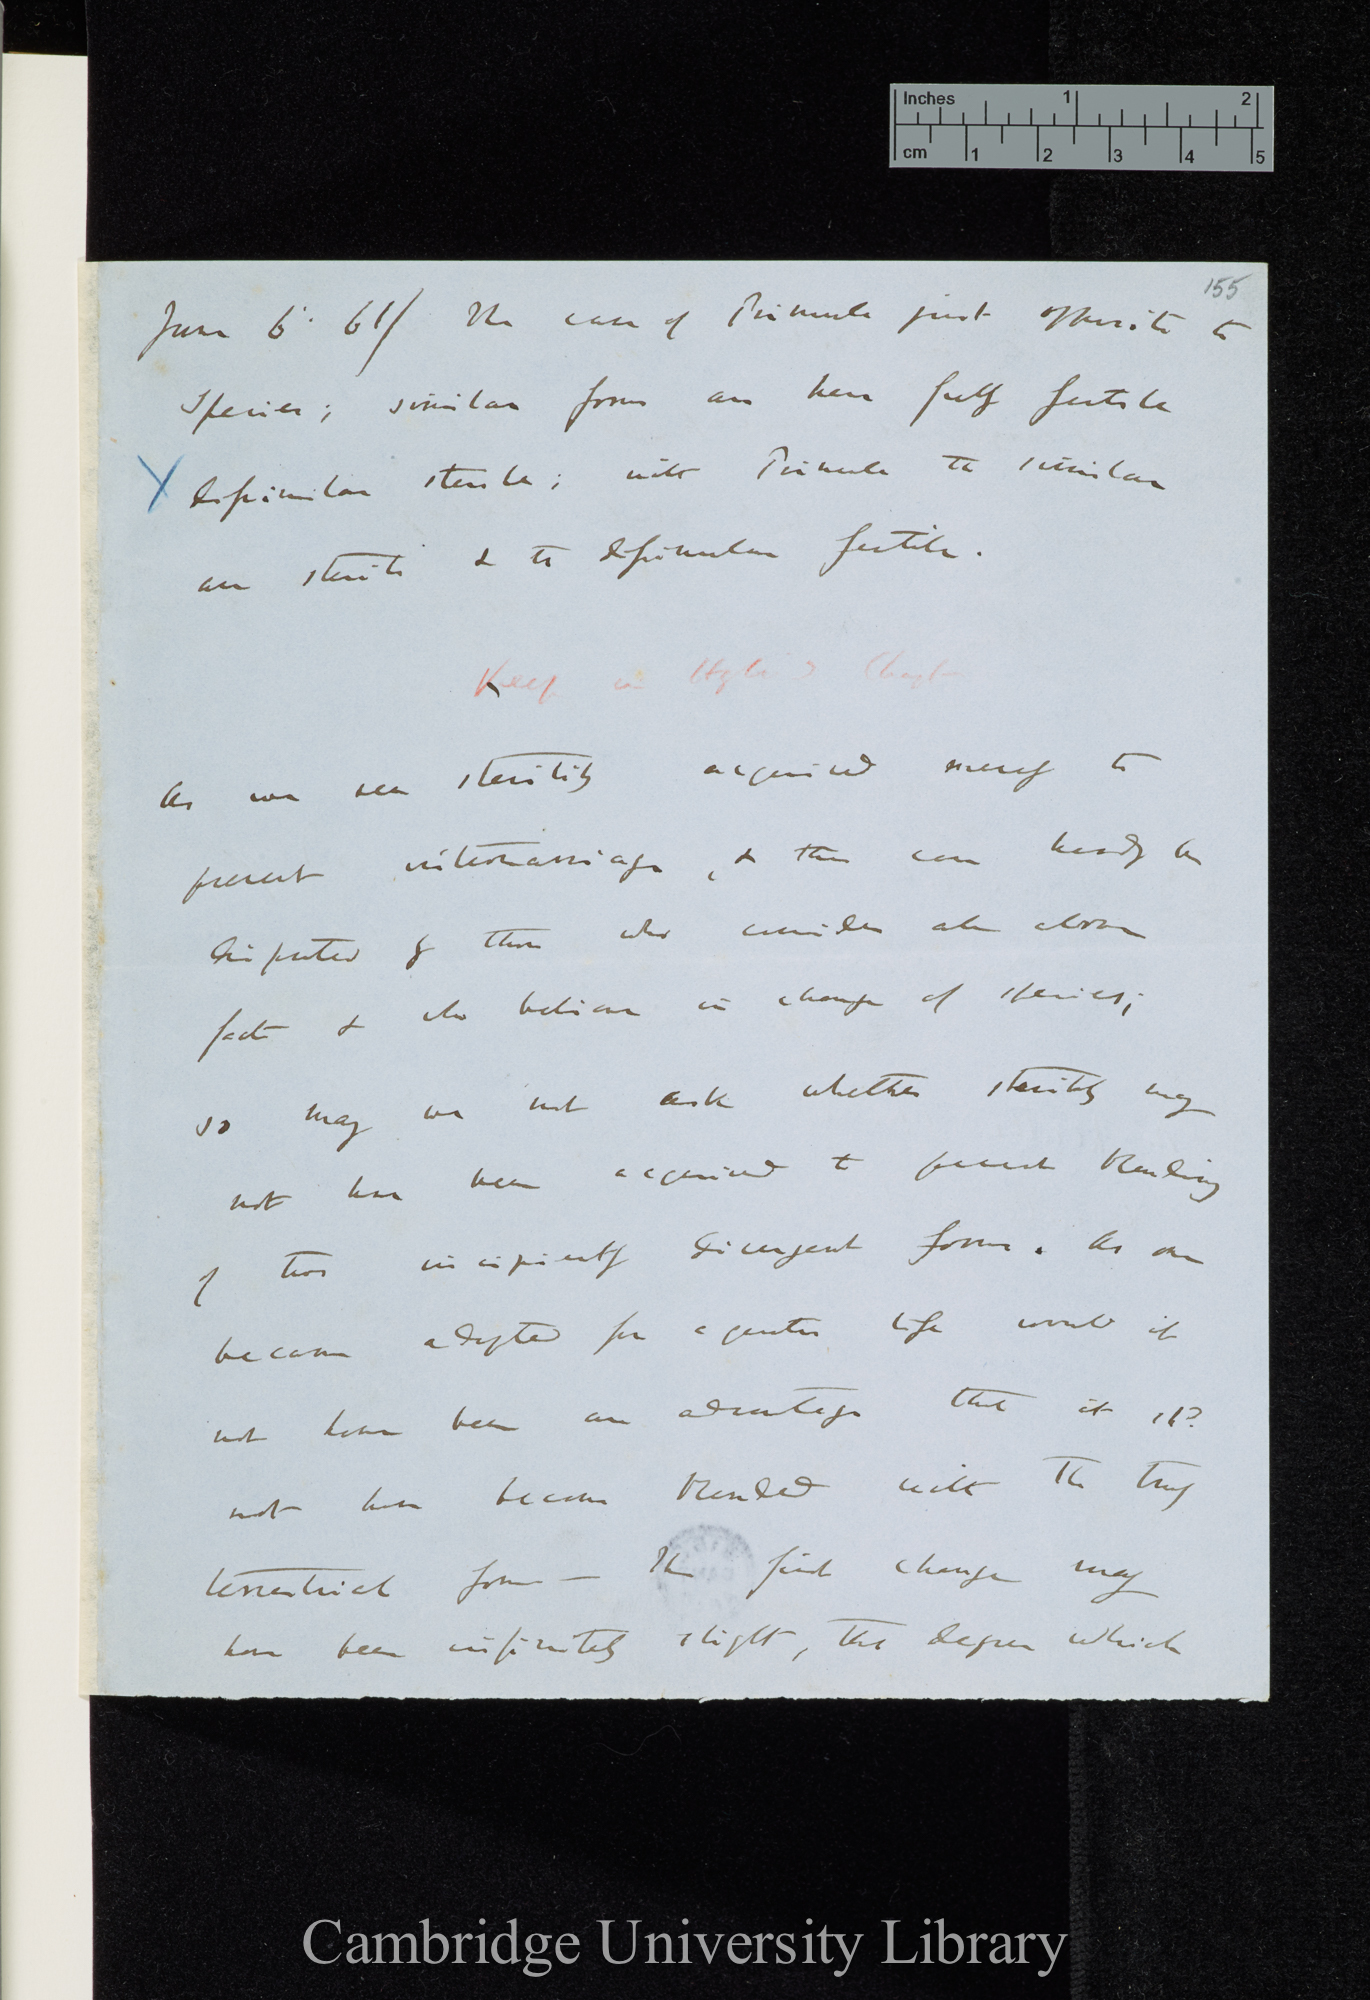 Inches 1 2
cm 1 2 3 4 5
155
June 6. 61/ The case of Primula just opposite to
species; similar forms are here fully fertile
X dissimilar sterile; with Primula the similar
are sterile & the dissimilar fertile.
Keep in Chapt
As we see sterility acquired merely to
prevent intermarriage, & this can hardly be
disputed by those who consider all above
facts & who believe in change of species;
so may we not ask whether sterility may
not have been acquired to prevent blending
of two incipiently divergent forms. As one
became adapted for aquatic life would it
not have been an advantage that it shd
not have become blended with the truly
terrestrial form — The first change may
have been infinitely slight, the degree which
Cambridge University Library